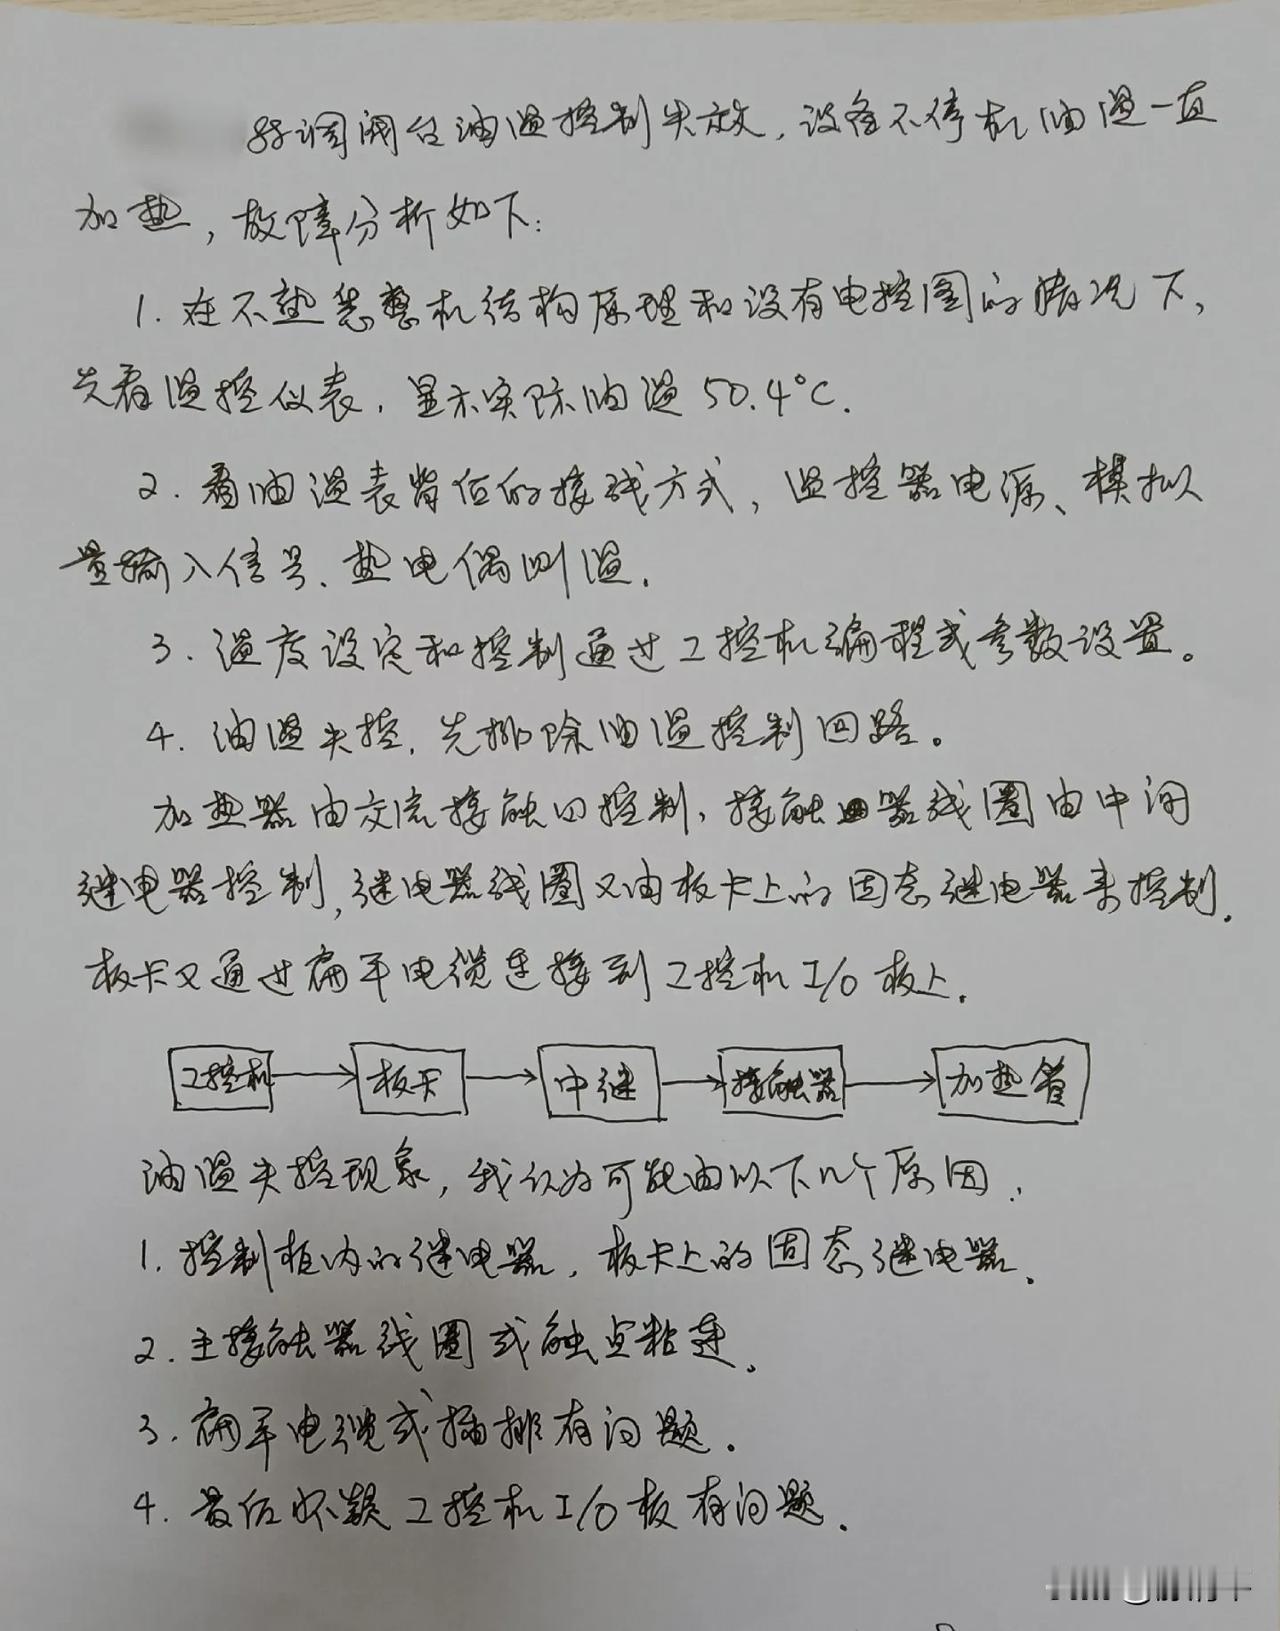 调阀台油温控制失效，设备不停机油温一直
加热，故障分析如下：
1. 在不熟悉整机结构原理和没有电控图的情况下，
先看温控仪表，显示实际油温50.4°C.
2. 看油温表背后的接线方式，温控器电源、模拟
量输入信号、热电偶测温.
3. 温度设定和控制通过工控机编程或参数设置。
4. 油温失控，先排除油温控制回路。
加热器由交流接触口控制，接触器线圈由中间
继电器控制，继电器线圈又由板卡上的固态继电器来控制.
板卡又通过扁平电缆连接到工控机I/O板上.
工控机 板卡 中继 接触器 加热管
油温失控现象，我认为可能由以下几个原因.
1. 控制柜内的继电器，板卡上的固态继电器.
2. 主接触器线圈或触点粘连.
3. 扁平电缆或插排有问题.
4. 最后怀疑工控机I/O板有问题.